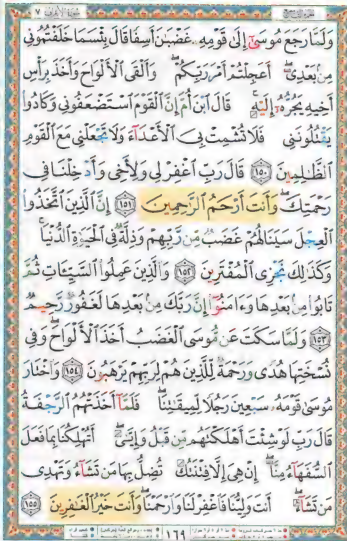 الجزء التاسع سورة الأعراف ٧
وَلَمَّا رَجَعَ مُوسَىٰٓ إِلَىٰ قَوْمِهِۦ غَضْبَٰنَ أَسِفًا قَالَ بِئْسَمَا خَلَفْتُمُونِى
مِنۢ بَعْدِىٓ ۖ أَعَجِلْتُمْ أَمْرَ رَبِّكُمْ ۖ وَأَلْقَى ٱلْأَلْوَاحَ وَأَخَذَ بِرَأْسِ
أَخِيهِ يَجُرُّهُۥٓ إِلَيْهِ ۚ قَالَ ٱبْنَ أُمَّ إِنَّ ٱلْقَوْمَ ٱسْتَضْعَفُونِى وَكَادُوا۟
يَقْتُلُونَنِى فَلَا تُشْمِتْ بِىَ ٱلْأَعْدَآءَ وَلَا تَجْعَلْنِى مَعَ ٱلْقَوْمِ
ٱلظَّٰلِمِينَ ۝١٥٠ قَالَ رَبِّ ٱغْفِرْ لِى وَلِأَخِى وَأَدْخِلْنَا فِى
رَحْمَتِكَ ۖ وَأَنتَ أَرْحَمُ ٱلرَّٰحِمِينَ ۝١٥١ إِنَّ ٱلَّذِينَ ٱتَّخَذُوا۟
ٱلْعِجْلَ سَيَنَالُهُمْ غَضَبٌ مِّن رَّبِّهِمْ وَذِلَّةٌ فِى ٱلْحَيَوٰةِ ٱلدُّنْيَا ۚ
وَكَذَٰلِكَ نَجْزِى ٱلْمُفْتَرِينَ ۝١٥٢ وَٱلَّذِينَ عَمِلُوا۟ ٱلسَّيِّـَٔاتِ ثُمَّ
تَابُوا۟ مِنۢ بَعْدِهَا وَءَامَنُوٓا۟ إِنَّ رَبَّكَ مِنۢ بَعْدِهَا لَغَفُورٌ رَّحِيمٌ
۝١٥٣ وَلَمَّا سَكَتَ عَن مُّوسَى ٱلْغَضَبُ أَخَذَ ٱلْأَلْوَاحَ ۖ وَفِى
نُسْخَتِهَا هُدًى وَرَحْمَةٌ لِّلَّذِينَ هُمْ لِرَبِّهِمْ يَرْهَبُونَ ۝١٥٤ وَٱخْتَارَ
مُوسَىٰ قَوْمَهُۥ سَبْعِينَ رَجُلًا لِّمِيقَٰتِنَا ۖ فَلَمَّآ أَخَذَتْهُمُ ٱلرَّجْفَةُ
قَالَ رَبِّ لَوْ شِئْتَ أَهْلَكْتَهُم مِّن قَبْلُ وَإِيَّٰىَ ۖ أَتُهْلِكُنَا بِمَا فَعَلَ
ٱلسُّفَهَآءُ مِنَّآ ۖ إِنْ هِىَ إِلَّا فِتْنَتُكَ تُضِلُّ بِهَا مَن تَشَآءُ وَتَهْدِى
مَن تَشَآءُ ۖ أَنتَ وَلِيُّنَا فَٱغْفِرْ لَنَا وَٱرْحَمْنَا ۖ وَأَنتَ خَيْرُ ٱلْغَٰفِرِينَ ۝١٥٥
١٦٩